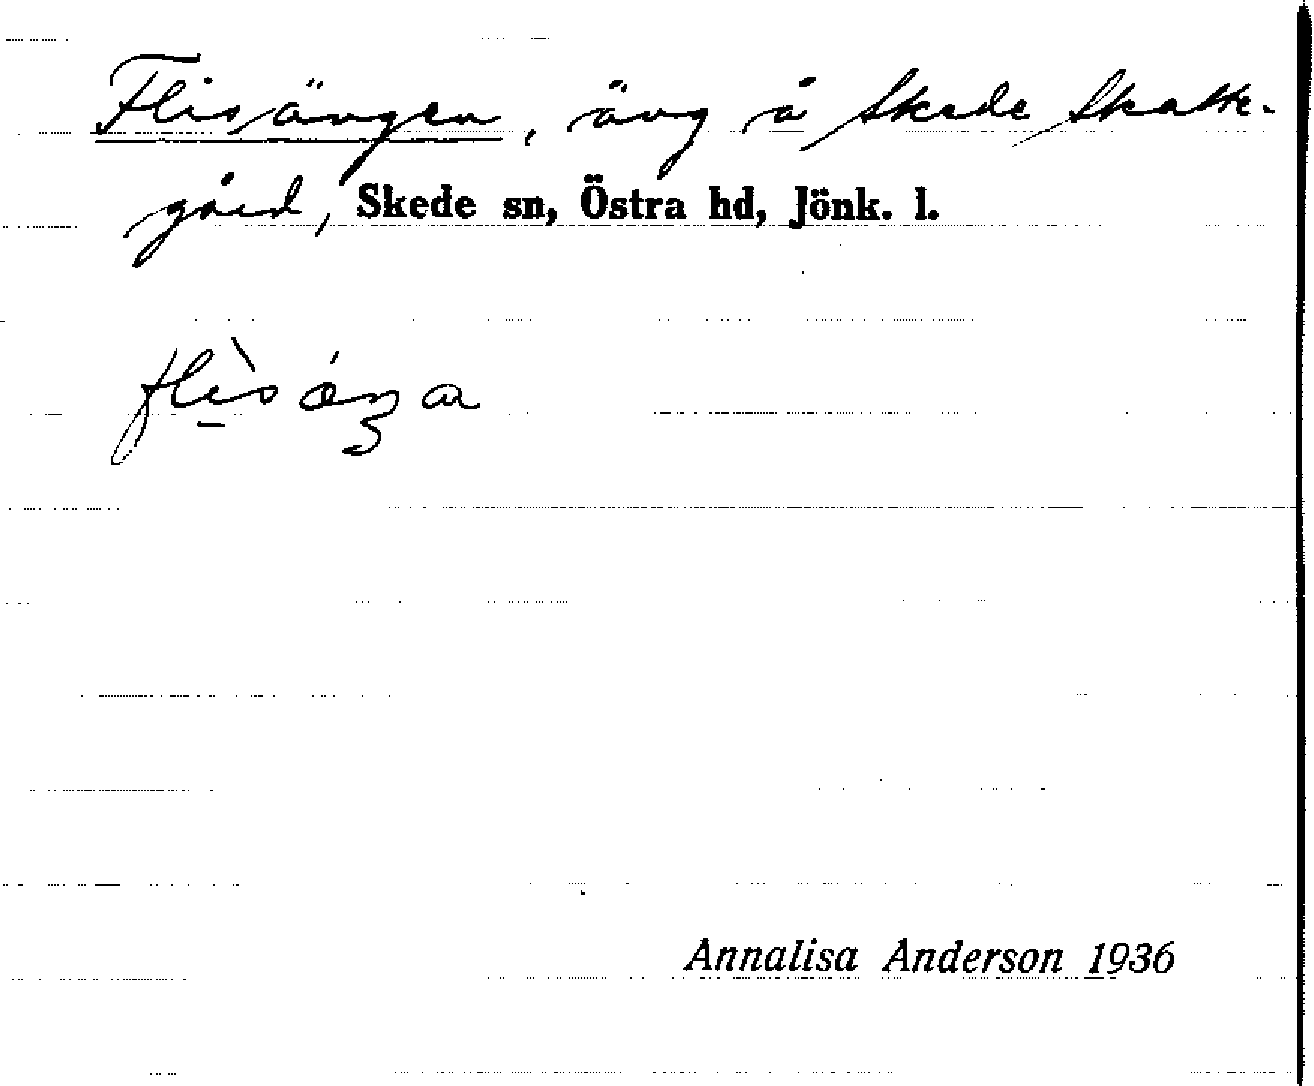 Flisängen, äng å Skede Skatte-
gård, Skede sn, Östra hd, Jönk. l.
Annalisa Anderson 1936